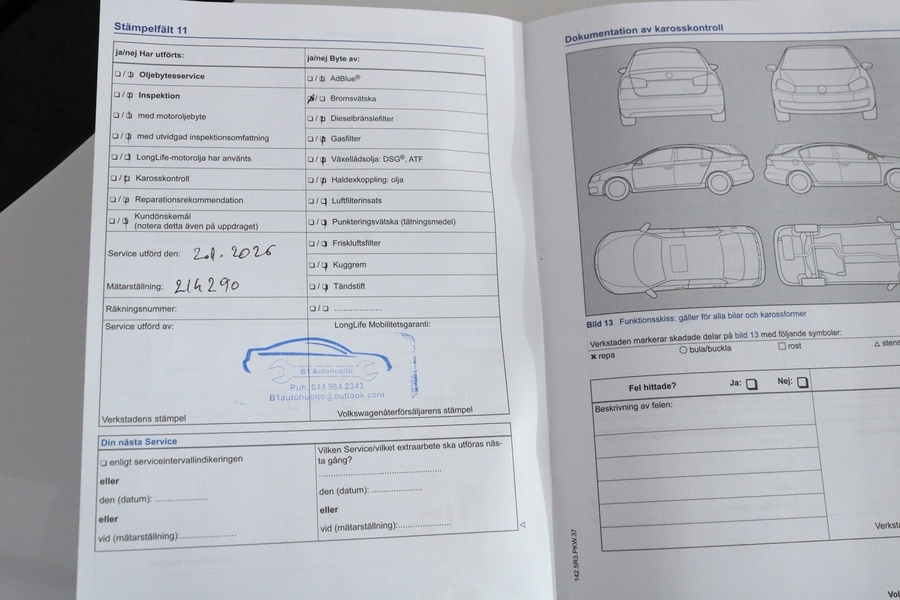 Stämpelfält 11
ja/nej Har utförts:
❏ / ❏ Oljebytesservice
❏ / ❏ Inspektion
❏ / ❏ med motoroljebyte
❏ / ❏ med utvidgad inspektionsomfattning
❏ / ❏ LongLife-motorolja har använts
❏ / ❏ Karosskontroll
❏ / ❏ Reparationsrekommendation
❏ / ❏ Kundönskemål
(notera detta även på uppdraget)
Service utförd den: 2.1. 2026
Mätarställning: 214290
Räkningsnummer:
Service utförd av:
Verkstadens stämpel
ja/nej Byte av:
❏ / ❏ AdBlue®
❏ / ❏ Bromsvätska
❏ / ❏ Dieselbränslefilter
❏ / ❏ Gasfilter
❏ / ❏ Växellådsolja: DSG®, ATF
❏ / ❏ Haldexkoppling: olja
❏ / ❏ Luftfilterinsats
❏ / ❏ Punkteringsvätska (tätningsmedel)
❏ / ❏ Friskluftsfilter
❏ / ❏ Kuggrem
❏ / ❏ Tändstift
❏ / ❏ .....................
LongLife Mobilitetsgaranti:
B1 Autohuolto
Puh. 044 984 2343
B1autohuolto@outlook.com
Volkswagenåterförsäljarens stämpel
Din nästa Service
❏ enligt serviceintervallindikeringen
eller
den (datum): ....................
eller
vid (mätarställning):.....................
Vilken Service/vilket extraarbete ska utföras näs-
ta gång?
.............................................
den (datum): ...................
eller
vid (mätarställning):....................
Dokumentation av karosskontroll
Bild 13 Funktionsskiss: gäller för alla bilar och karossformer
Verkstaden markerar skadade delar på bild 13 med följande symboler:
✖ repa ○ bula/buckla □ rost △ stens
Fel hittade? Ja: ❏ Nej: ❏
Beskrivning av felen:
Verksta
142.5R3.PKW.37
Vol